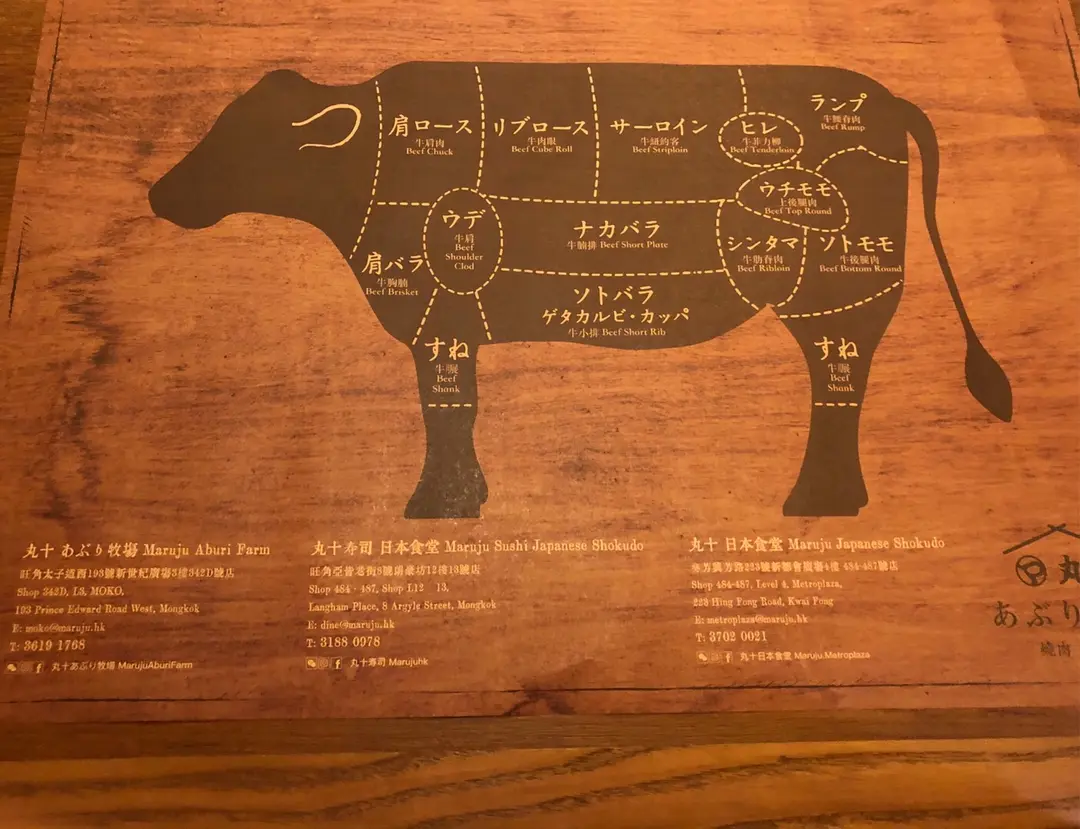 肩ロース
牛肩肉
Beef Chuck
リブロース
牛肉眼
Beef Cube Roll
サーロイン
牛紐約客
Beef Striploin
ヒレ
牛菲力柳
Beef Tenderloin
ランプ
牛臀脊肉
Beef Rump
ウデ
牛肩
Beef
Shoulder
Clod
肩バラ
牛胸腩
Beef Brisket
ナカバラ
牛腩排 Beef Short Plate
ソトバラ
ゲタカルビ・カッパ
牛小排 Beef Short Rib
ウチモモ
上後腿肉
Beef Top Round
シンタマ
牛肋脊肉
Beef Ribloin
ソトモモ
牛後腿肉
Beef Bottom Round
すね
牛𦟌
Beef
Shank
すね
牛𦟌
Beef
Shank
丸十 あぶり牧場 Maruju Aburi Farm
旺角太子道西193號新世紀廣場3樓342D號店
Shop 342D, L3, MOKO,
193 Prince Edward Road West, Mongkok
E: moko@maruju.hk
T: 3619 1768
丸十あぶり牧場 MarujuAburiFarm
丸十寿司 日本食堂 Maruju Sushi Japanese Shokudo
旺角亞皆老街8號朗豪坊12樓13號店
Shop 484 - 487, Shop L12 - 13,
Langham Place, 8 Argyle Street, Mongkok
E: dine@maruju.hk
T: 3188 0978
丸十寿司 Marujuhk
丸十 日本食堂 Maruju Japanese Shokudo
葵芳興芳路223號新都會廣場4樓 484-487號店
Shop 484-487, Level 4, Metroplaza,
223 Hing Fong Road, Kwai Fong
E: metroplaza@maruju.hk
T: 3702 0021
丸十日本食堂 Maruju.Metroplaza
丸
あぶり
燒肉